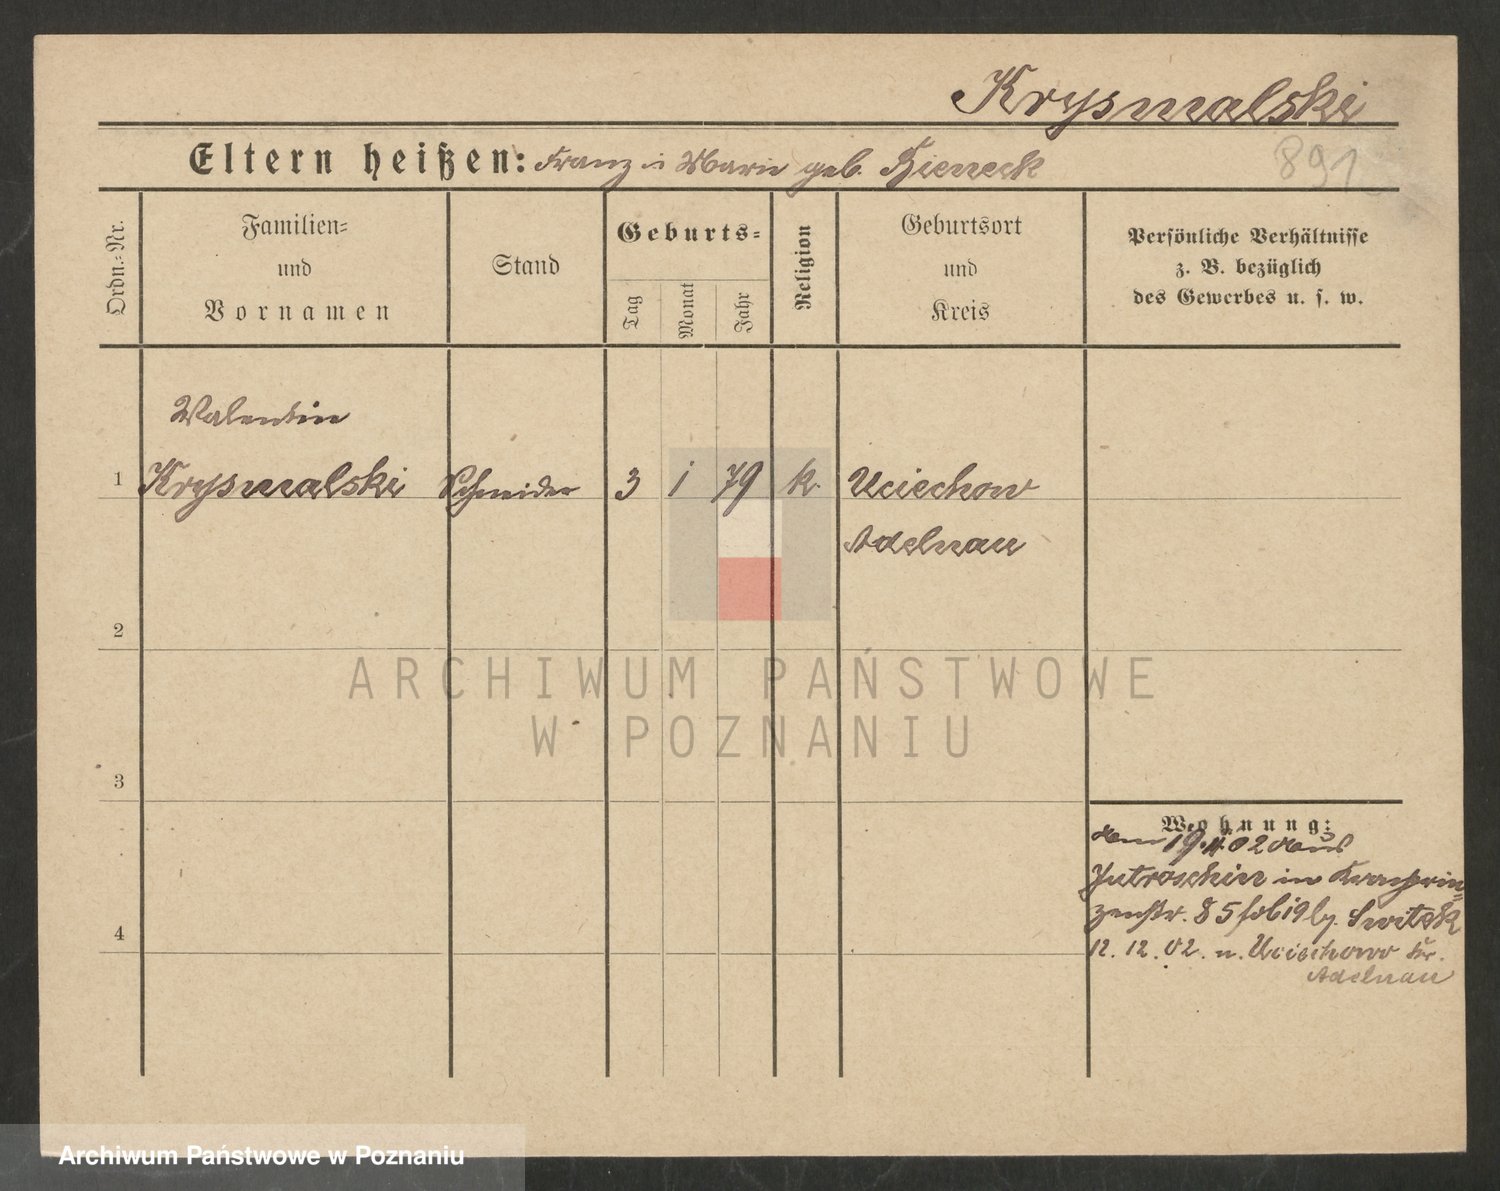 Krysmalski
Eltern heißen: Franz u Marie geb. Hieneck
891
Ordn.-Nr.
Familien-
und
Vornamen
Stand
Geburts-
Tag
Monat
Jahr
Religion
Geburtsort
und
Kreis
Persönliche Verhältnisse
z. B. bezüglich
des Gewerbes u. s. w.
Valentin
1 Krysmalski Schneider 3 1 79 k. Uciechow
Adelnau
2
3
4
Wohnung:
den 19. 11. 02 aus
Jutroschin in Kronprin-
zenstr. 85 bei
12. 12. 02. n. Uciechowo Kr.
Adelnau
ARCHIWUM PAŃSTWOWE
W POZNANIU
Archiwum Państwowe w Poznaniu